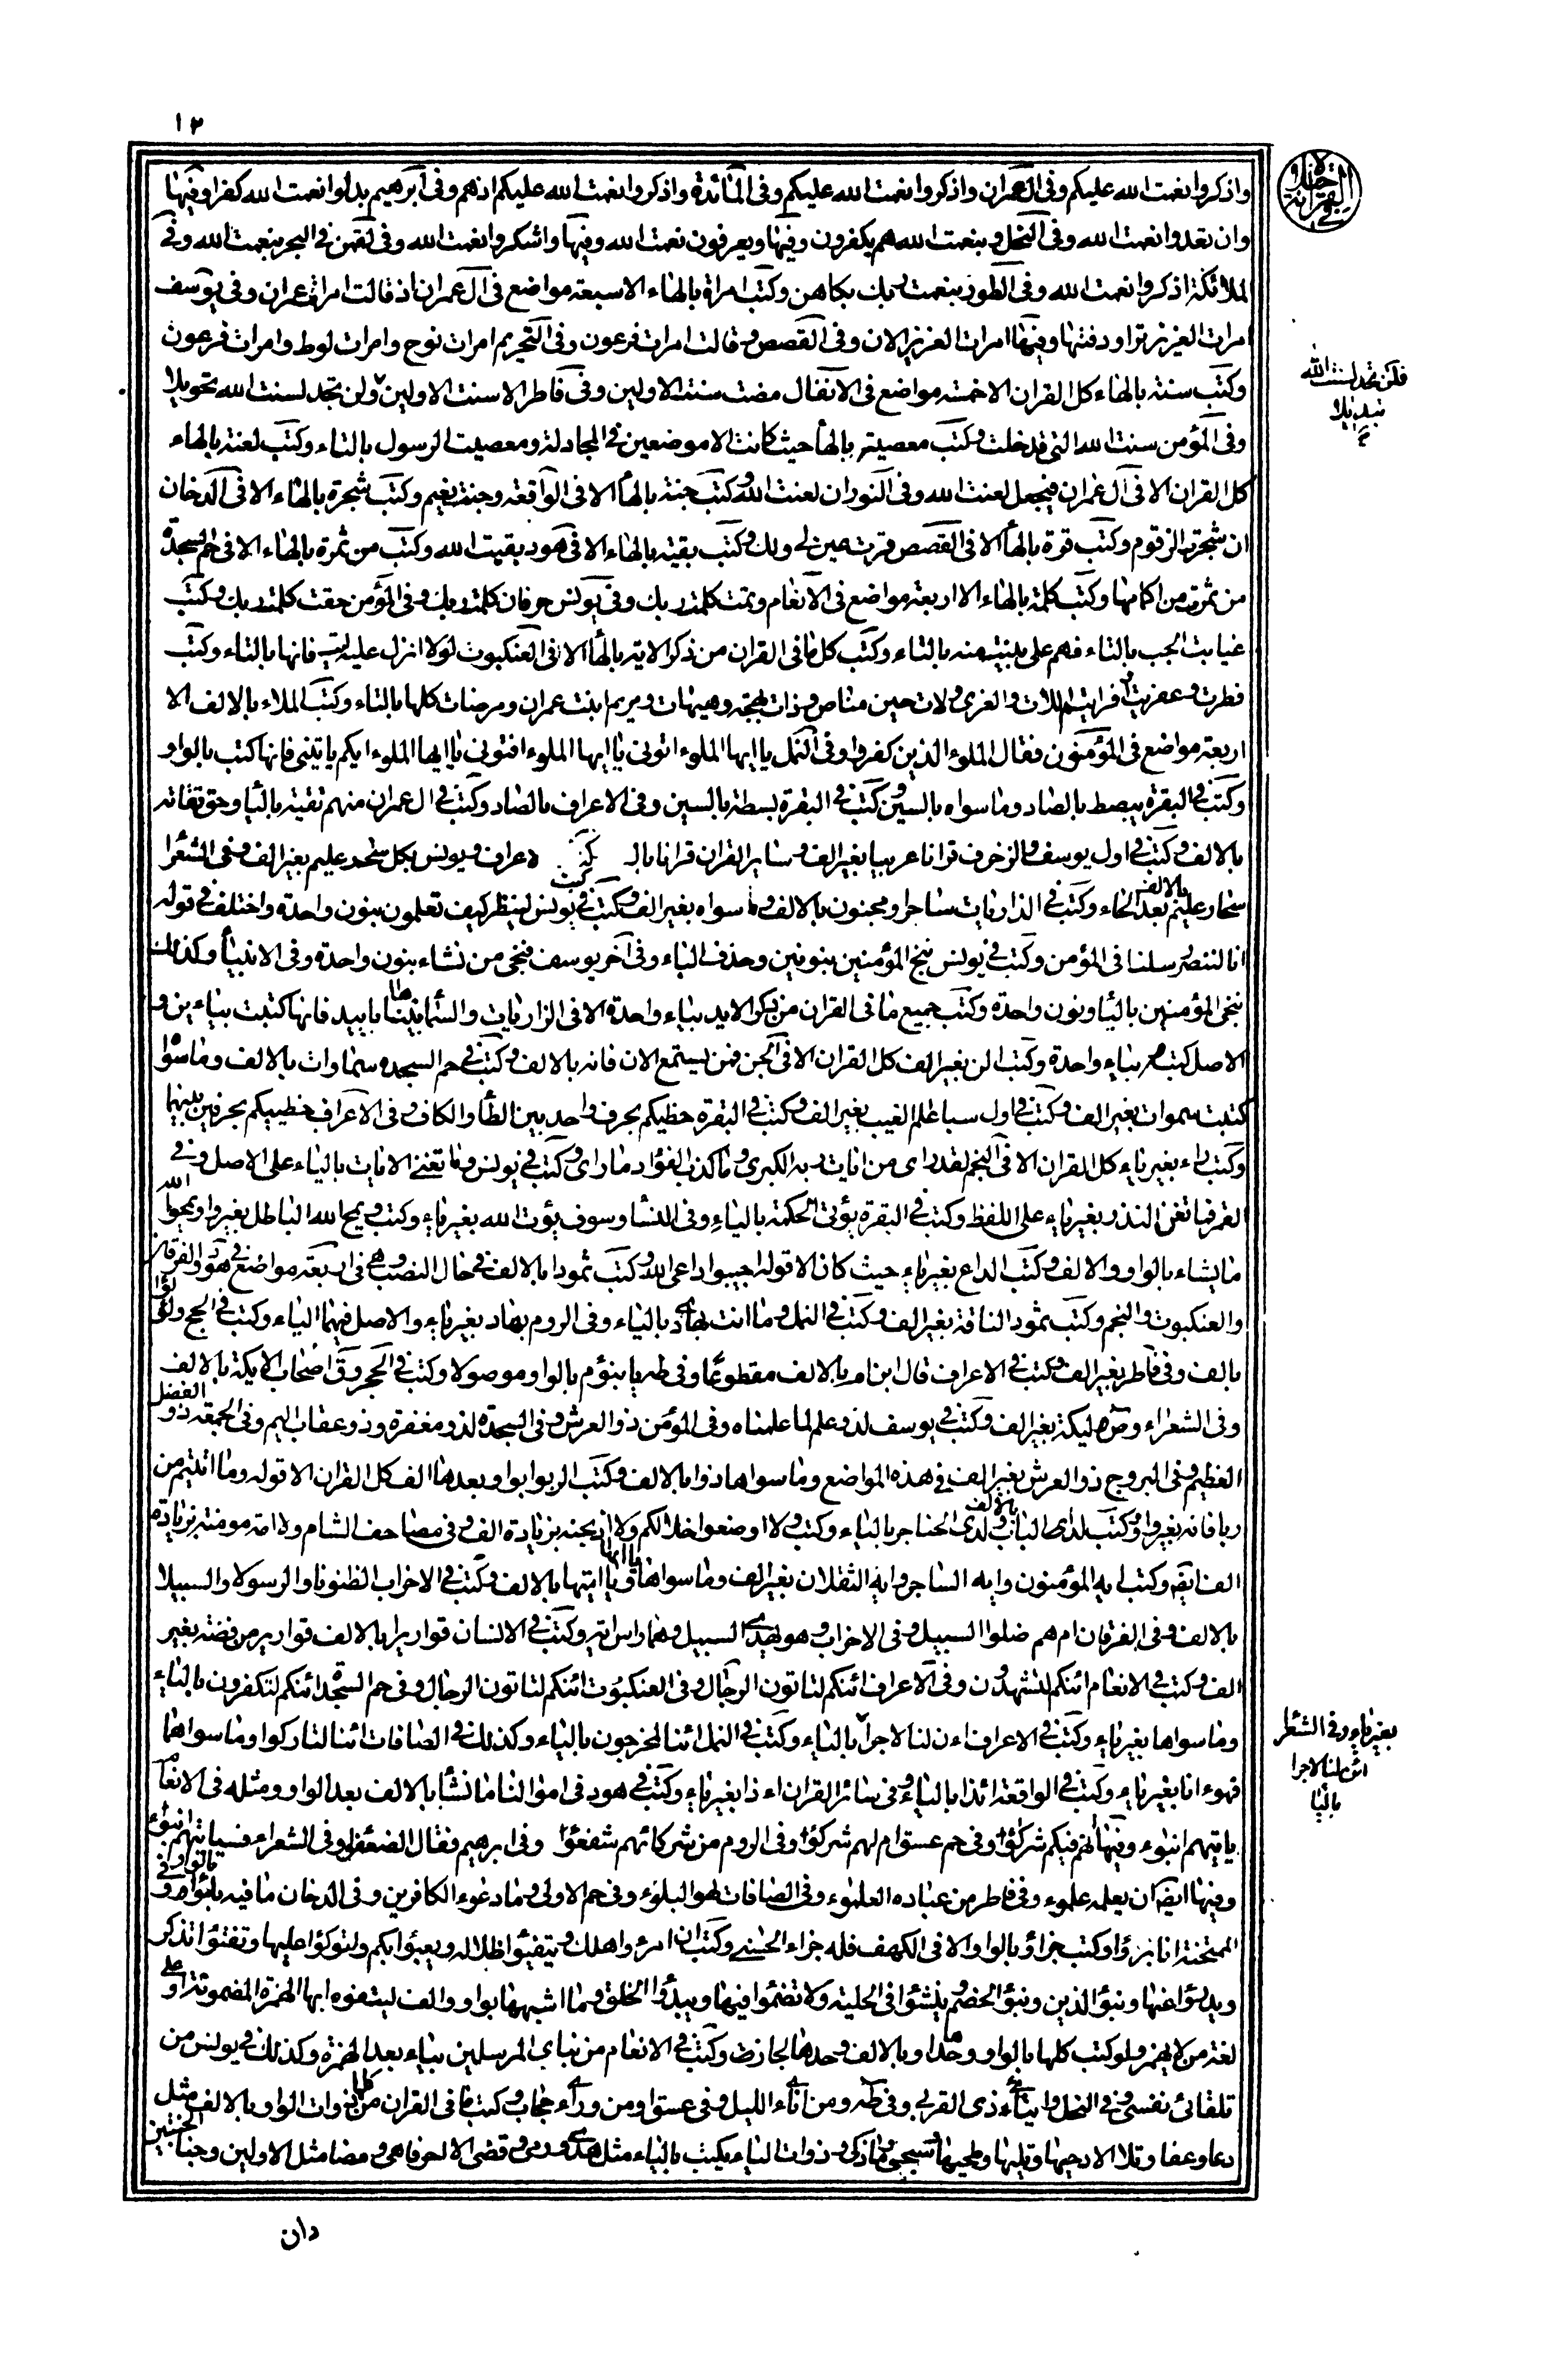 ١٢
الاختلاف في القراءة
واذكروا نعمت الله عليكم وفى آل عمران واذكروا نعمت الله عليكم وفى المائدة واذكروا نعمت الله عليكم اذهم وفى ابرهيم بدلوا نعمت الله كفرا وفيها
وان تعدوا نعمت الله وفى النحل وبنعمت الله هم يكفرون وفيها ويعرفون نعمت الله وفيها واشكروا نعمت الله وفى لقمن فى البحر بنعمت الله وفى
الملائكة اذكروا نعمت الله وفى الطور بنعمت ربك بكاهن وكتب امراة بالهاء الا سبعة مواضع فى آل عمران اذ قالت امرات عمران وفى يوسف
امرات العزيز تراود فتيها وفيها امرات العزيز الان وفى القصص وقالت امرات فرعون وفى التحريم امرات نوح وامرات لوط وامرات فرعون
وكتب سنة بالهاء كل القران الا خمسة مواضع فى الانفال مضت سنت الاولين وفى فاطر الا سنت الاولين ولن تجد لسنت الله تحويلا
فلن تجد لسنت الله
تبديلا
وفى المؤمن سنت الله التى قد خلت وكتب معصية بالهاء حيث كانت الا موضعين فى المجادلة ومعصيت الرسول بالتاء وكتب لعنة بالهاء
كل القران الا فى آل عمران فنجعل لعنت الله وفى النور ان لعنت الله وكتب جنة بالهاء الا فى الواقعة وجنت نعيم وكتب شجرة بالهاء الا فى الدخان
ان شجرت الزقوم وكتب قرة بالهاء الا فى القصص قرت عين لى ولك وكتب بقية بالهاء الا فى هود بقيت الله وكتب من ثمرة بالهاء الا فى حم السجدة
من ثمرت من اكمامها وكتب كلمة بالهاء الا اربعة مواضع فى الانعام وتمت كلمت ربك وفى يونس حرفان كلمت ربك وفى المؤمن حقت كلمت ربك وكتب
غيابت الجب بالتاء فهم على بينت منه بالتاء وكتب كل ما فى القران من ذكر الاية بالهاء الا فى العنكبوت لولا انزل عليه ايت فانها بالتاء وكتب
فطرت وعفريت افرايتم اللات والعزى ولات حين مناص وذات بهجة وهيهات ومريم ابنت عمران ومرضات كلها بالتاء وكتب الملاء بالالف الا
اربعة مواضع فى المؤمنون فقال الملوء الذين كفروا وفى النمل يا ايها الملوء انى يا ايها الملوء افتونى يا ايها الملوء ايكم ياتينى فانها كتب بالواو
وكتب فى البقرة يبصط بالصاد وما سواه بالسين وكتب فى البقرة بسطة بالسين وفى الاعراف بالصاد وكتب فى ال عمران منهم تقية بالياء وحق تقاته
بالالف وكتب فى اول يوسف والزخرف قرانا عربيا بغير الف وسائر القران قرانا عراف ويونس بكل سحر عليم بغير الف وفى الشعرا
سحار عليم بعد الحاء بالالف وكتب فى الذاريات ساحر او مجنون بالالف وما سواه بغير الف وكتب فى يونس لينظر كيف تعلمون بنون واحدة واختلف فى قوله
انا لننصر رسلنا فى المؤمن وكتب فى يونس ننج المؤمنين بنونين وحذف الياء وفى آخر يوسف فنجى من نشاء بنون واحدة وفى الانبيا وكذلك
ننجى المؤمنين بالياء ونون واحدة وكتب جميع ما فى القران من ذكر الايد بياء واحدة الا فى الزاريات والسماء بنيناها باييد فانها كتبت بياءين و
الاصل كتب بياء واحدة وكتب الن بغير الف كل القران الا فى الجن فمن يستمع الان فانه بالالف وكتب فى حم السجده سماوات بالالف وما سواه
كتبت سموات بغير الف وكتب فى اول سبا علم الغيب بغير الف وكتب فى البقرة خطيكم بحرف واحد بين الطاء والكاف وفى الاعراف خطيتكم بحرفين بينهما
وكتب راء بغير ياء كل القران الا فى النجم لقد راى من ايات ربه الكبرى وما كذب الفؤاد ما راى وكتب فى يونس وما تغنى الايات بالياء على الاصل وفى
القمر فما تغن النذر بغير ياء على اللفظ وكتب فى البقرة يؤتى الحكمة بالياء وفى النسا وسوف يؤت الله بغير ياء وكتب ويمح الله الباطل بغير واو ويمحوا الله
ما يشاء بالواو والالف وكتب الداع بغير ياء حيث كان الا قوله اجيبوا داعى الله وكتب ثمودا بالالف فى حال النصب وهى فى اربعة مواضع فى هود والفرقان
والعنكبوت والنجم وكتب ثمود الناقة بغير الف وكتب فى النمل وما انت بهادى بالياء وفى الروم بهاد بغير ياء والاصل فيهما الياء وكتب فى الحج ولؤلؤا
بالف وفى فاطر بغير الف وكتب فى الاعراف قال ابن ام بالالف مقطوعا وفى طه يا بنؤم بالواو موصولا وكتب فى الحجر وق اصحاب الايكة بالالف
وفى الشعراء وص ليكة بغير الف وكتب فى يوسف لذو علم لما علمناه وفى المؤمن ذو العرش وفى السجدة لذو مغفرة وذو عقاب اليم وفى الجمعة ذو الفضل
العظيم وفى البروج ذو العرش بغير الف فى هذه المواضع وما سواها ذوا بالالف وكتب الربوا بواو بعدها الف كل القران الا قوله وما اتيتم من
ربا فانه بغير واو وكتب لدا الباب بالالف ولدى الحناجر بالياء وكتب ولا اوضعوا خلالكم ولا اذبحنه بزيادة الف وفى مصاحف الشام ولا امة مومنة بزيادة
الف ايضا وكتب ايه المؤمنون وايه الساحر وايه الثقلان بغير الف وما سواها يا ايها ويا ايتها بالالف وكتب فى الاحزاب الظنونا والرسولا والسبيلا
بالالف وفى الفرقان ام هم ضلوا السبيل وفى الاحزاب وهو يهدى السبيل وهما راس اية وكتب فى الانسان قواريرا بالالف قوارير من فضة بغير
الف وكتب فى الانعام ائنكم لتشهدون وفى الاعراف ائنكم لتاتون الرجال وفى العنكبوت ائنكم لتاتون الرجال وفى حم السجدة ائنكم لتكفرون بالياء
وما سواها بغير ياء وكتب فى الاعراف اءن لنا لاجرا بالياء وكتب فى النمل ائنا لمخرجون بالياء وكذلك فى الصافات ائنا لتاركوا وما سواهما
بغير ياء وفى الشعرا
ائن لنا لاجرا
بالياء
فهو ءانا بغير ياء وكتب فى الواقعة ائذا بالياء وفى سائر القران اءذا بغير ياء وكتب فى هود فى اموالنا ما نشا بالالف بعد الواو ومثله فى الانعام
ياتيهم انبوء وفيها انهم فيكم شركؤا وفى حم عسق ام لهم شركؤا وفى الروم من شركائهم شفعؤا وفى ابرهيم فقال الضعفؤا وفى الشعراء فسياتيهم انبؤء
وفيها ايضا ان يعلمه علموء وفى فاطر من عباده العلموء وفى الصافات لهو البلوء وفى حم الاولى وما دعوء الكافرين وفى الدخان ما فيه بلؤا بالواو وفى
الممتحنة انا برؤا وكتب جزاؤ بالواو الا فى الكهف فله جزاء الحسنى وكتب ان امرؤ هلك ويتفيؤا ظلاله ويعبؤا بكم واتوكؤا عليها وتفتؤا تذكر
ويدرؤا عنها ونبؤ الذين ونبؤ الخصم وينشؤا فى الحلية ولا تضمؤا فيها ويبدؤا الخلق وما اشبهها بواو والف ليتفوه ابها الهمزة المضمومة او على
لغة من لا يهمز ولو كتب كلها بالواو وحدها او بالالف وحدها لجاز وكتب فى الانعام من نباى المرسلين بياء بعد الهمزة وكذلك فى يونس من
تلقائ نفسى وفى النحل وايتائ ذى القربى وفى طه ومن اناء الليل وفى عسق او من وراء حجاب وكتب ما فى القران من ذوات الواو بالالف مثل
دعا وعفا وتلا الا دحيها وتليها وطحيها وسجى وما ذكى وذوات الياء يكتب بالياء مثل هدى ورمى وقضى الا احرفا هى ومضا مثل الاولين وجنا الجنتين
دان